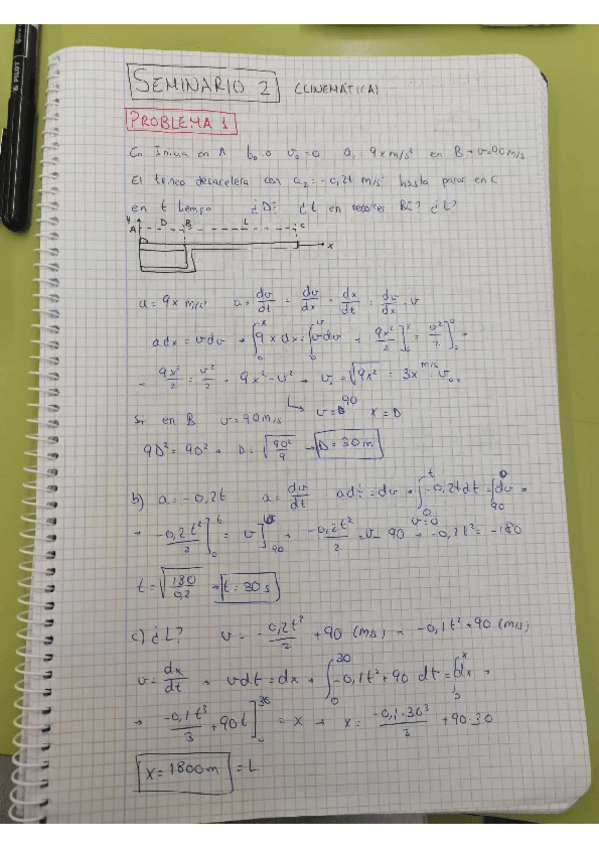 PILOT
SEMINARIO 2 (CINEMÁTICA)
PROBLEMA 1
En Inicia en A t₀=0 v₀=0 a₁=9x m/s² en B → v=90 m/s
El trineo desacelera con a₂=-0,2t m/s² hasta parar en C
en t tiempo ¿D? ¿t en recorrer BC? ¿L?
y
A D B L C
x
a=9x m/s² a=dv/dt = dv/dx · dx/dt = dv/dx · v
adx=vdv → ∫₀ˣ 9xdx=∫₀ᵛ vdv → 9x²/2]₀ˣ = v²/2]₀ᵛ →
→ 9x²/2=v²/2 → 9x²=v² → v=√9x² = 3x m/s
v=90 x=D
Si en B v=90m/s
9D²=90² → D=√90²/9 → D=30m
b) a=-0,2t a=dv/dt adt=dv → ∫₀ᵗ -0,2tdt=∫₉₀⁰ dv →
v=0
→ -0,2t²/2]₀ᵗ = v]₉₀ → -0,2t²/2 = v-90 → -0,2t²=-180
t=√180/0,2 → t=30s
c) ¿L? v=-0,2t²/2 +90 (m/s) = -0,1t²+90 (m/s)
v=dx/dt → vdt=dx → ∫₀³⁰ -0,1t²+90 dt=∫₀ˣ dx →
→ -0,1t³/3 +90t]₀³⁰ = x → x= -0,1·30³/3 +90·30
x=1800m = L